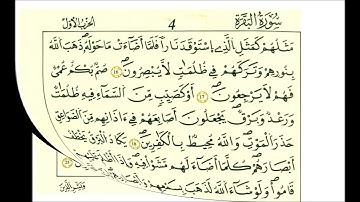 سُورَةُ البَقَرَةِ 4 الحِزْبُ الأوّل
مَثَلُهُمْ كَمَثَلِ الَّذِي اِسْتَوْقَدَ نَاراً فَلَمَّا أَضَاءَتْ مَا حَوْلَهُ ذَهَبَ اللَّهُ
بِنُورِهِمْ وَتَرَكَهُمْ فِي ظُلُمَاتٍ لَا يُبْصِرُونَ صُمٌّ بُكْمٌ عُمْيٌ
فَهُمْ لَا يَرْجِعُونَ أَوْ كَصَيِّبٍ مِّنَ السَّمَاءِ فِيهِ ظُلُمَاتٌ
وَرَعْدٌ وَبَرْقٌ يَجْعَلُونَ أَصَابِعَهُمْ فِي ءَاذَانِهِم مِّنَ الصَّوَاعِقِ
حَذَرَ الْمَوْتِ وَاللَّهُ مُحِيطٌ بِالْكَافِرِينَ يَكَادُ الْبَرْقُ يَخْطَفُ
أَبْصَارَهُمْ كُلَّمَا أَضَاءَ لَهُم مَّشَوْا فِيهِ وَإِذَا أَظْلَمَ عَلَيْهِمْ
قَامُوا وَلَوْ شَاءَ اللَّهُ لَذَهَبَ بِسَمْعِهِمْ